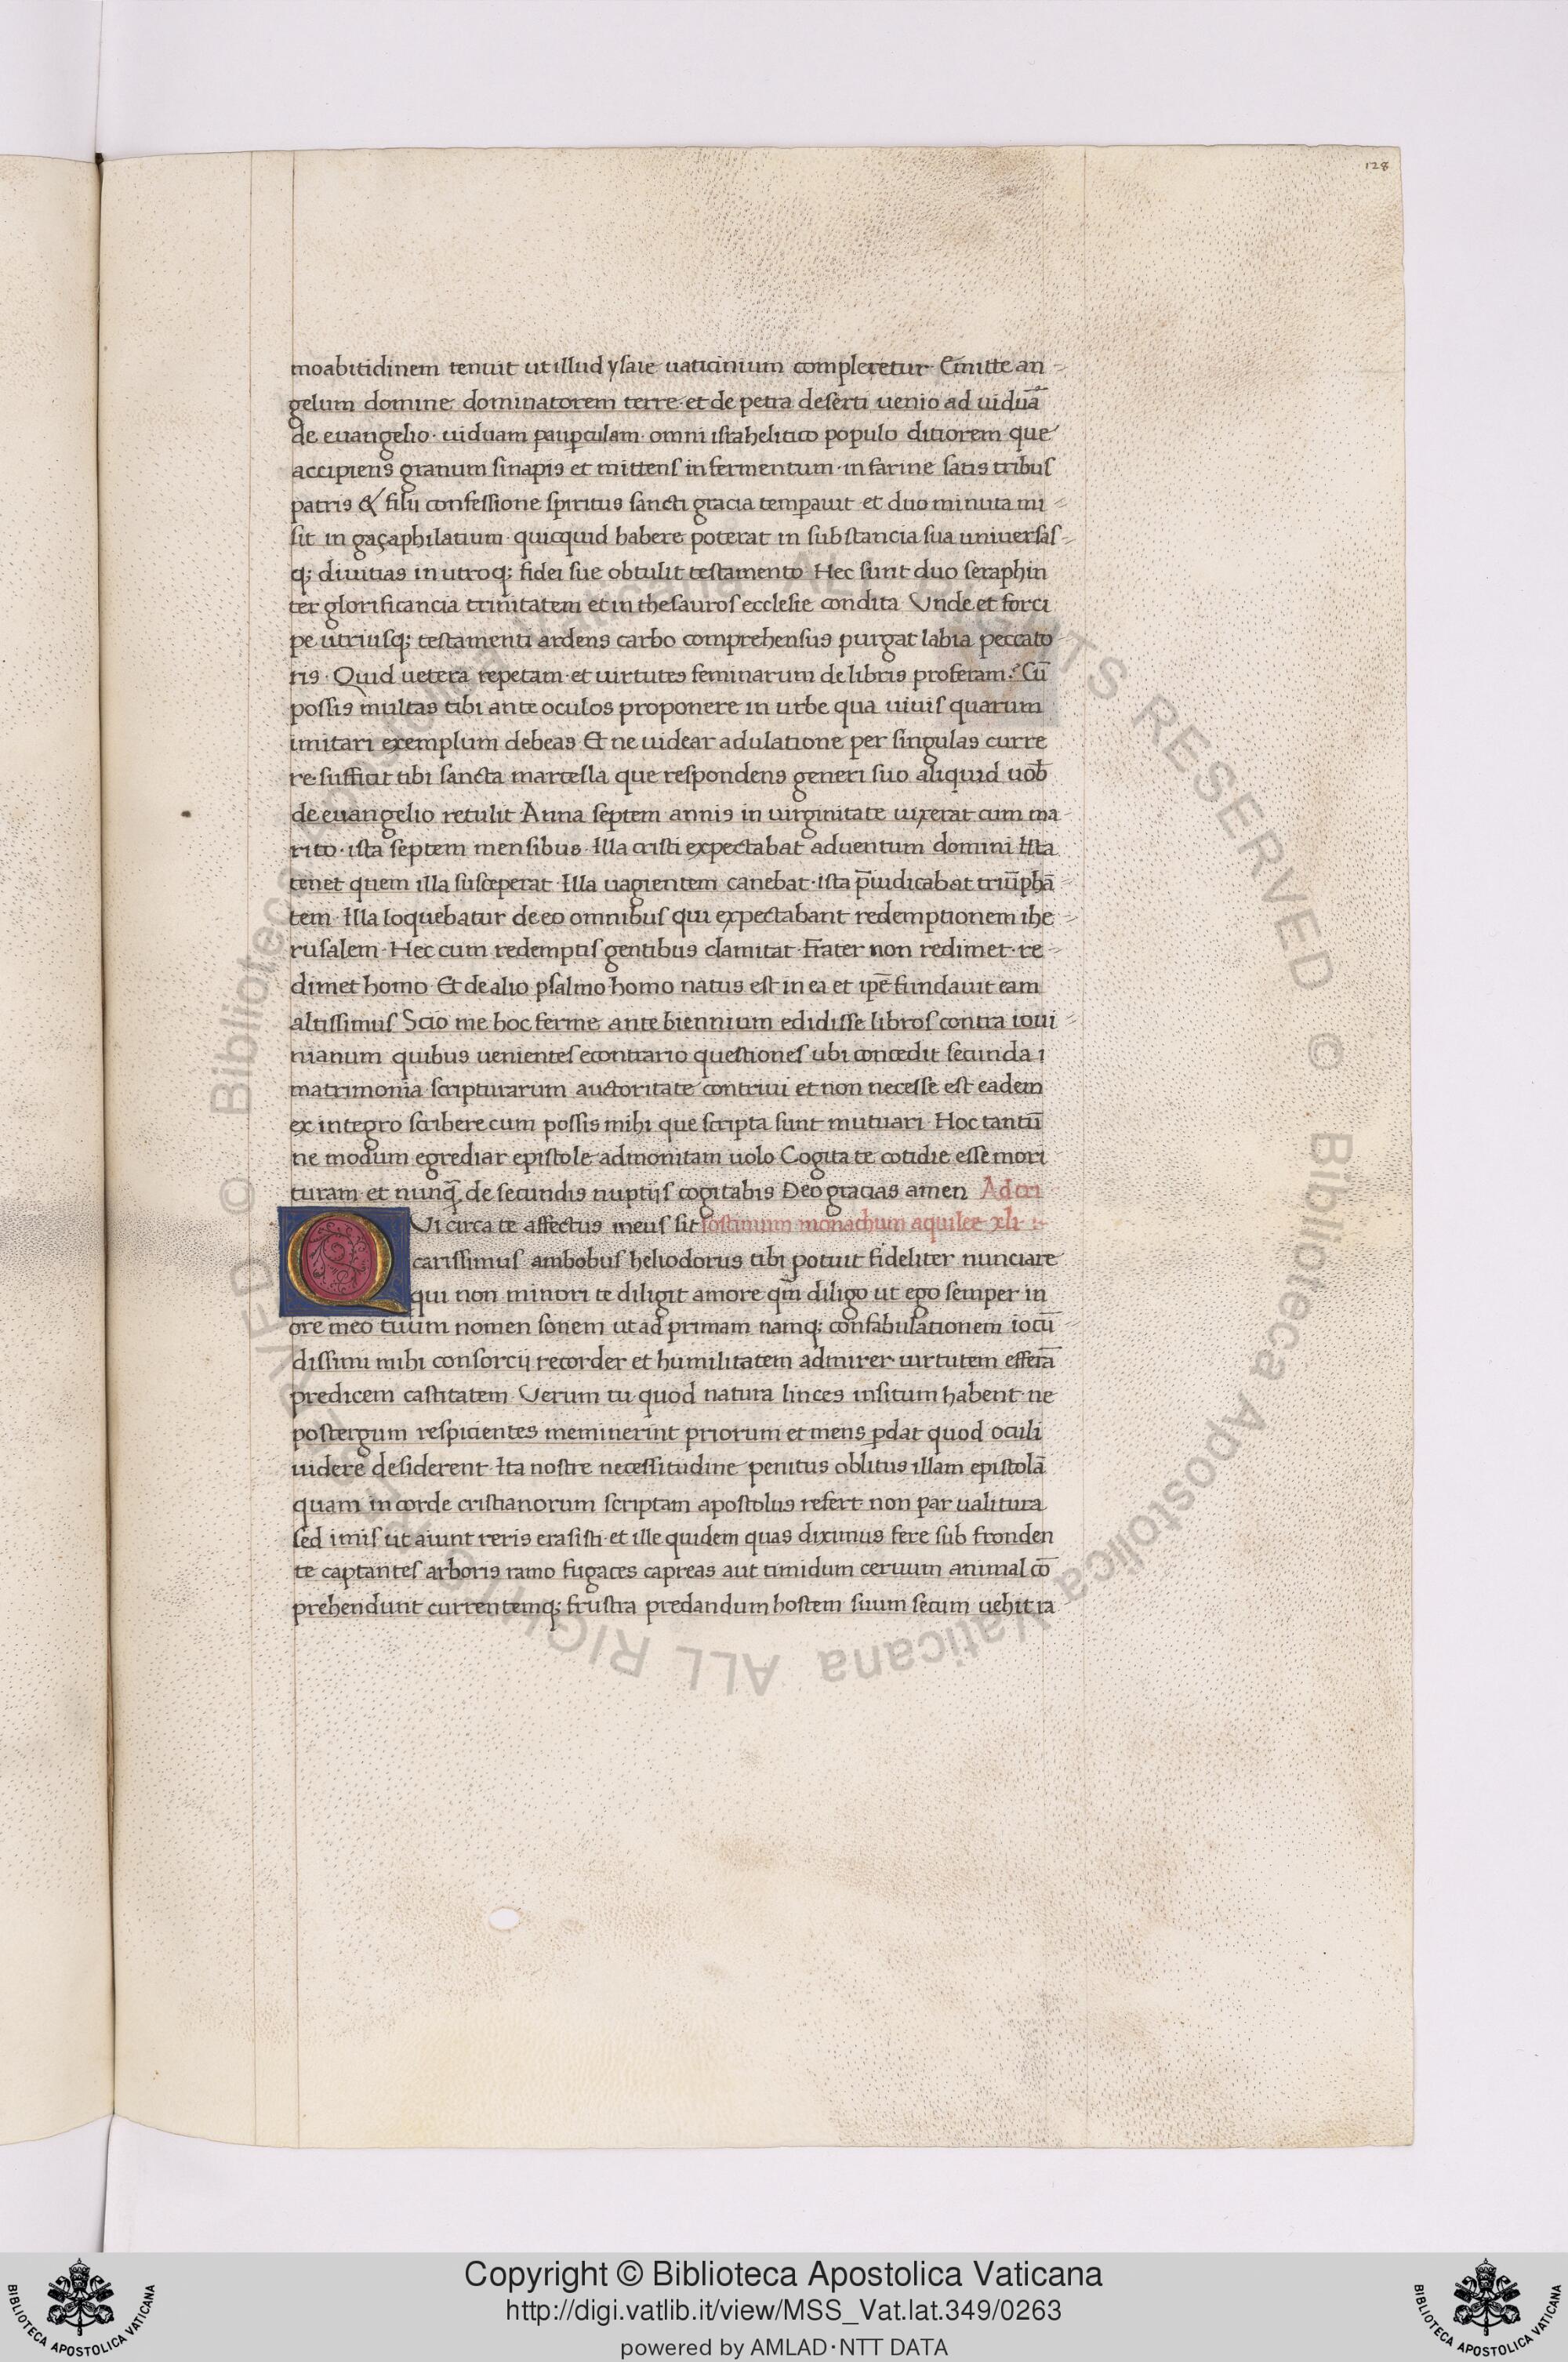 128
moabitidinem tenuit ut illud ysaie uaticinium compleretur Emitte an
gelum domine dominatorem terre et de petra deserti uenio ad uiduā
de euangelio· uiduam pauꝑculam· omni israhelitico populo ditiorem que
accipiens granum sinapis et mittens in fermentum· in farine satis tribus
patris & filii confessione spiritus sancti gracia temꝑauit et duo minuta mi
sit in gaçaphilatium quicquid habere poterat in substancia sua uniuersas
q; diuitias in utroq; fidei sue obtulit testamento Hec sunt duo seraphin
ter glorificancia trinitatem et in thesauros ecclesie condita Vnde et forci
pe utriusq; testamenti ardens carbo comprehensus purgat labia peccato
ris· Quid uetera repetam· et uirtutes feminarum de libris proferam? Cū
possis multas tibi ante oculos proponere in urbe qua uiuis quarum
imitari exemplum debeas Et ne uidear adulatione per singulas curre
re sufficit tibi sancta martella que respondens generi suo aliquid uob̄
de euangelio retulit Anna septem annis in uirginitate uixerat cum ma
rito· ista septem mensibus Illa cristi expectabat aduentum domini Ista
tenet quem illa susceperat Illa uagientem canebat· ista p̄iudicabat triūphā
tem Illa loquebatur de eo omnibus qui expectabant redemptionem ihe
rusalem· Hec cum redemptis gentibus clamitat frater non redimet· re
dimet homo Et de alio psalmo homo natus est in ea et ip̄e fundauit eam
altissimus Scio me hoc ferme ante biennium edidisse libros contra ioui
nianum quibus uenientes econtrario questiones ubi concedit secunda i
matrimonia scripturarum auctoritate contriui et non necesse est eadem
ex integro scribere cum possis mihi que scripta sunt mutuari Hoc tantū
ne modum egrediar epistole admonitam uolo Cogita te cotidie esse mori
turam et nunq̄ de secundis nuptiis cogitabis Deo gracias amen Ad cri
QVi circa te affectus meus sit sostimum monachum aquilee xli
carissimus ambobus heliodorus tibi potuit fideliter nunciare
qui non minori te diligit amore qm̄ diligo ut ego semper in
ore meo tuum nomen sonem ut ad primam namq; confabulationem iocū
dissimi mihi consorcii recorder et humilitatem admirer uirtutem efferā
predicem castitatem Verum tu quod natura linces insitum habent ne
postergum respicientes meminerint priorum et mens ꝑdat quod oculi
uidere desiderent Ita nostre necessitudine penitus oblitus illam epistolā
quam in corde cristianorum scriptam apostolus refert non par ualitura
sed imis ut aiunt reris erasisti et ille quidem quas diximus fere sub fronden
te captantes arboris ramo fugaces capreas aut timidum ceruum animal cō
prehendunt currentemq; frustra predandum hostem suum secum uehit ra
© Biblioteca Apostolica Vaticana ALL RIGHTS RESERVED © Biblioteca Apostolica Vaticana ALL RIGHTS RESERVED
Copyright © Biblioteca Apostolica Vaticana
http://digi.vatlib.it/view/MSS_Vat.lat.349/0263
powered by AMLAD·NTT DATA
BIBLIOTECA APOSTOLICA VATICANA
BIBLIOTECA APOSTOLICA VATICANA